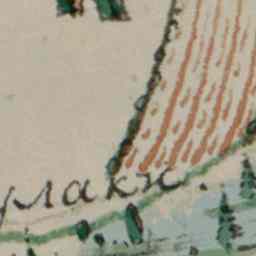 улаки.